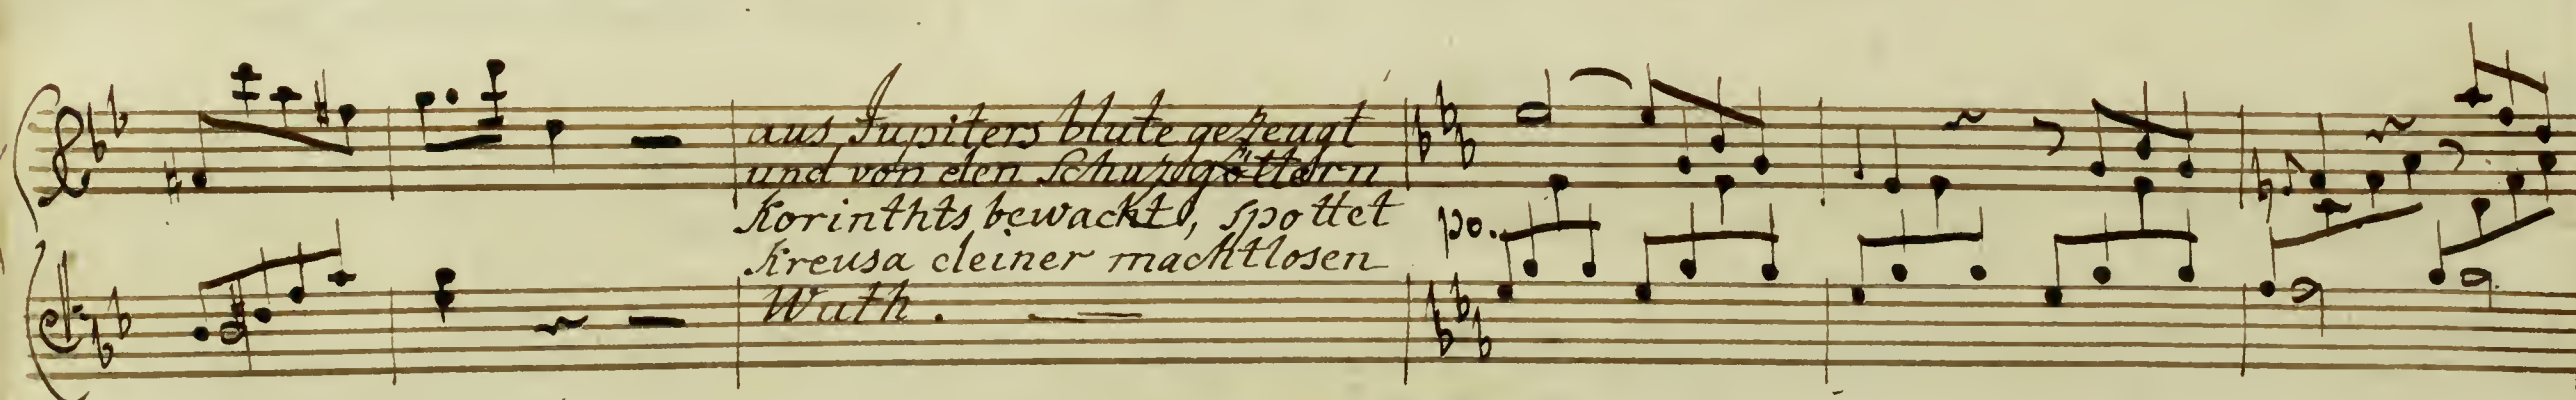 aus Jupiters blute gezeugt
und von den Schuzgöttern
Korinthts bewacht, spottet
Kreusa deiner machtlosen
Wuth.
po.